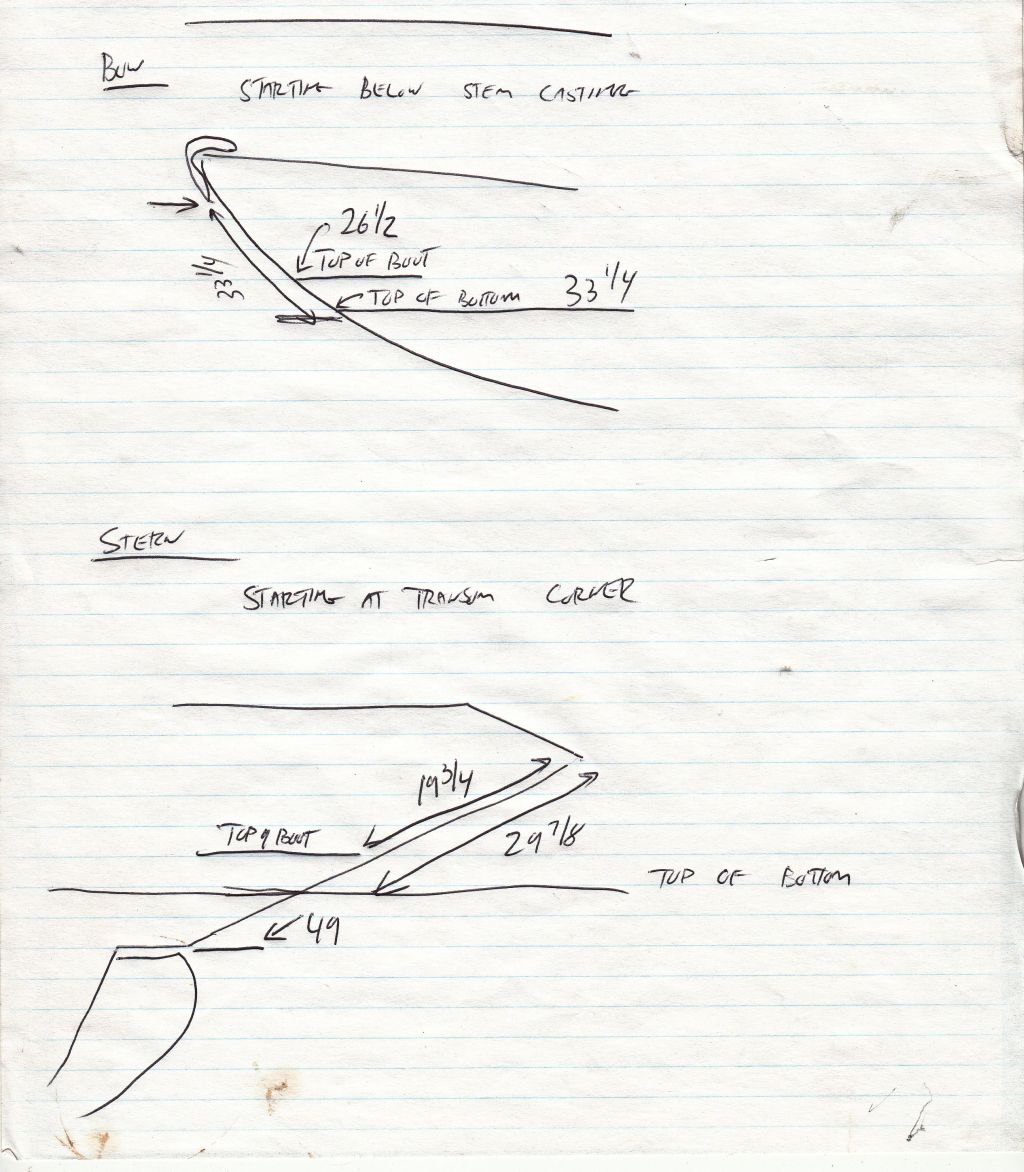 BOW
STARTING BELOW STEM CASTING
26 1/2
TOP OF BOOT
33 1/4
TOP OF BOTTOM 33 1/4
STERN
STARTING AT TRANSOM CORNER
19 3/4
TOP OF BOOT
29 7/8
TOP OF BOTTOM
49